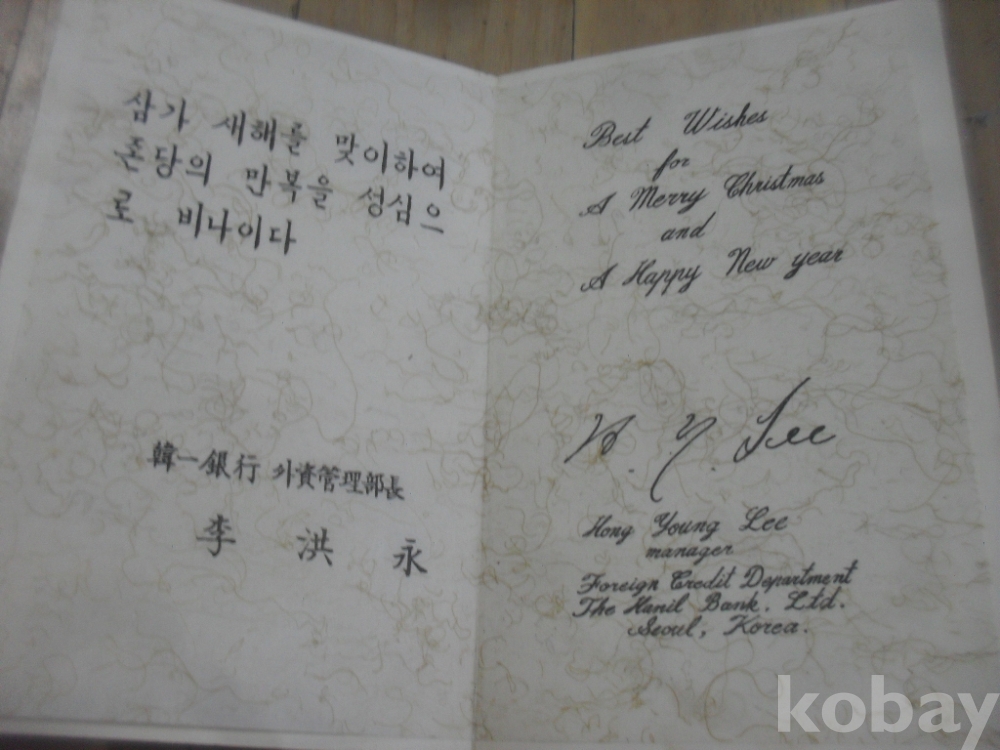 삼가 새해를 맞이하여
존당의 만복을 성심으
로 비나이다
韓一銀行 外資管理部長
李洪永
Best Wishes
for
A Merry Christmas
and
A Happy New year
H. Y. Lee
Hong Young Lee
manager
Foreign Credit Department
The Hanil Bank. Ltd.
Seoul, Korea.
kobay